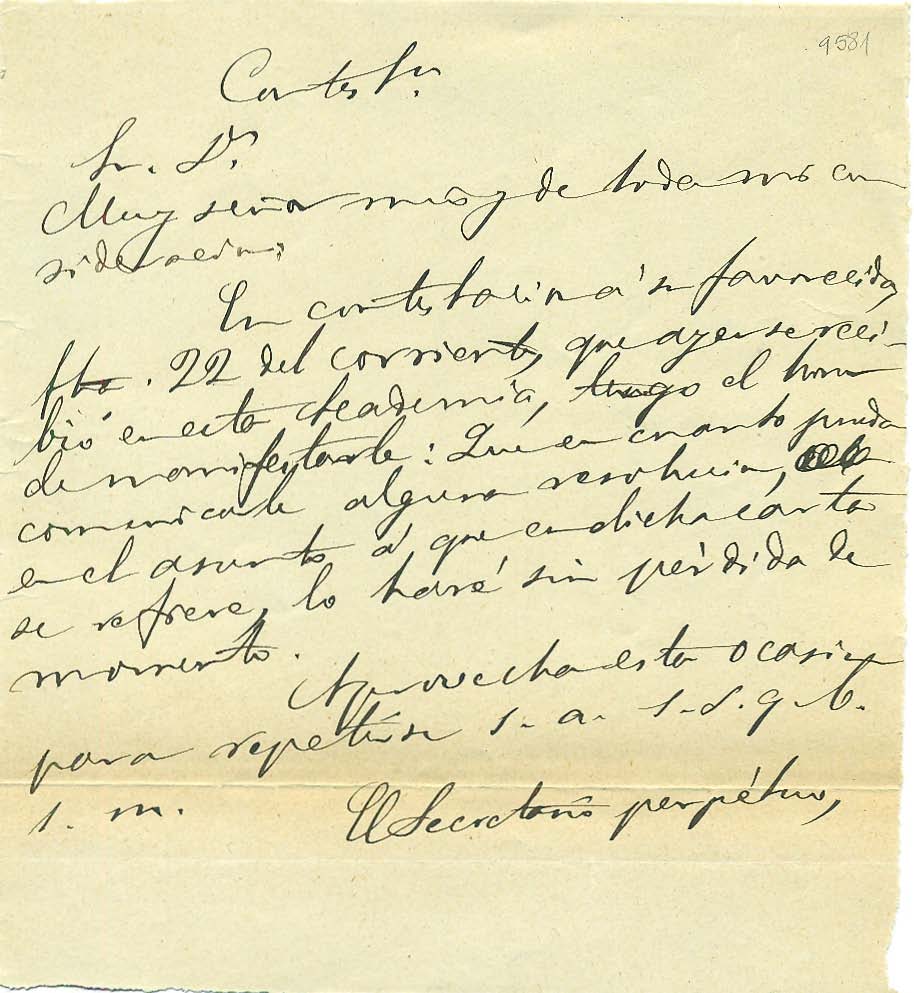 9581
Contest.n
Sr. D.n
Muy señor mío y de toda mi con
sideración:
En contestación á su favorecida,
fha. 22 del corriente, que ayer se reci-
bió en esta Academia, tengo el honor
de manifestarle: Que en cuanto pueda
comunicarle alguna resolución,
en el asunto á que en dicha carta
se refiere, lo haré sin pérdida de
momento.
Aprovecha esta ocasión
para repetirse s. a. s. s. q. b.
s. m.
El Secretario perpétuo,